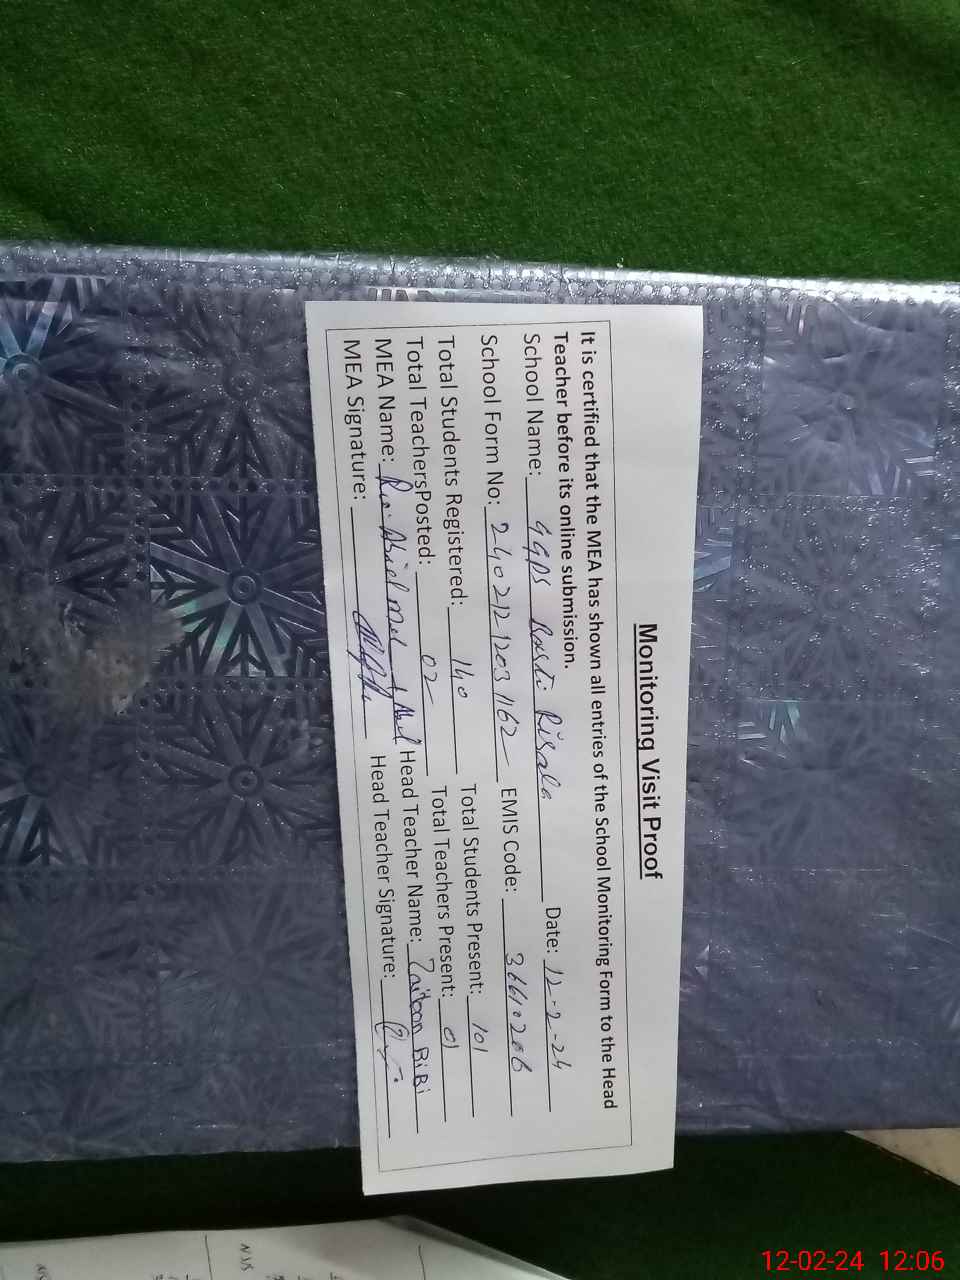 Monitoring Visit Proof
It is certified that the MEA has shown all entries of the School Monitoring Form to the Head
Teacher before its online submission.
School Name: GGPS Basti Risala Date: 12-2-24
School Form No: EMIS Code:
Total Students Registered: 140 Total Students Present: 101
Total TeachersPosted: 02 Total Teachers Present: 01
MEA Name: Head Teacher Name: BiBi
MEA Signature: Head Teacher Signature:
12-02-24 12:06